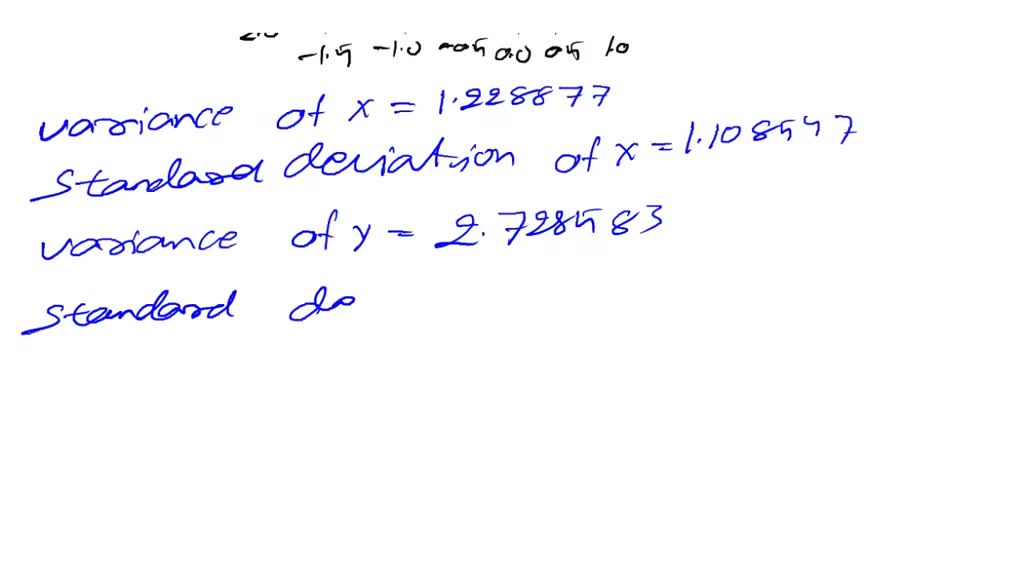 -1.5 -1.0 -0.5 0.0 0.5 1.0
variance of x = 1.228877
standard deviation of x = 1.108547
variance of y = 2.728583
standard de